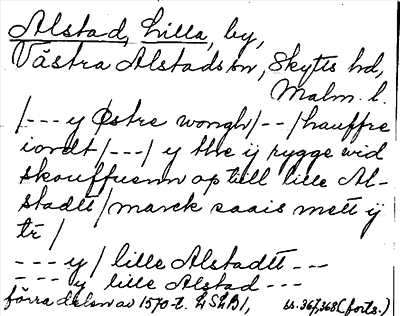 Alstad, Lilla, by,
Västra Alstads sn, Skytts hd,
Malm. l.
/--- y Østre wongh/--/hauffre
iordt/---/ y the ij rygge wid
skouffuenn op till lille Al-
stadtt/marck saais mett ij
tr/
--- y/ lille Alstadtt ---
--- y lille Alstad ---
förra delen av 1570-t. LSLB1, ss. 367,368 (forts.)